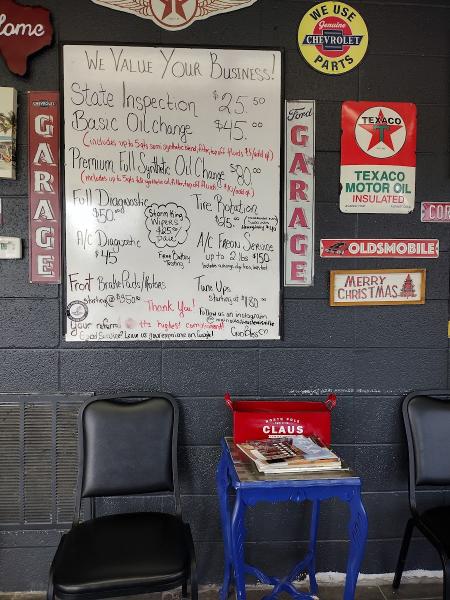 lcome
T
WE USE
Genuine
CHEVROLET
PARTS
WE VALUE YOUR BUSINESS!
State Inspection $25.50
Basic Oil change $45.00
(includes up to 5qts semi synthetic blend, filter, top off fluids
Premium Full Synthetic Oil Change $80.00
(includes up to 5qts full synthetic oil, filter, top off fluids
Full Diagnostic
$50.00
Storm King
Wipers
$25.00
pair
Tire Rotation
$25.00
A/C Diagnostic
$45
Free Battery
Testing
A/C Freon Service
up to 2 lbs $150
Front Brake Pads/Rotors
starting @ $350.00
Tune Ups
starting at $180.00
Thank You!
Your referral is the highest compliment!
Follow us on instagram
Good Service? Leave us your experience on Google!
God Bless
CHEVROLET
GARAGE
Ford
GARAGE
TEXACO
T
TEXACO
MOTOR OIL
INSULATED
COR
OLDSMOBILE
MERRY
CHRISTMAS
NORTH POLE
CLAUS